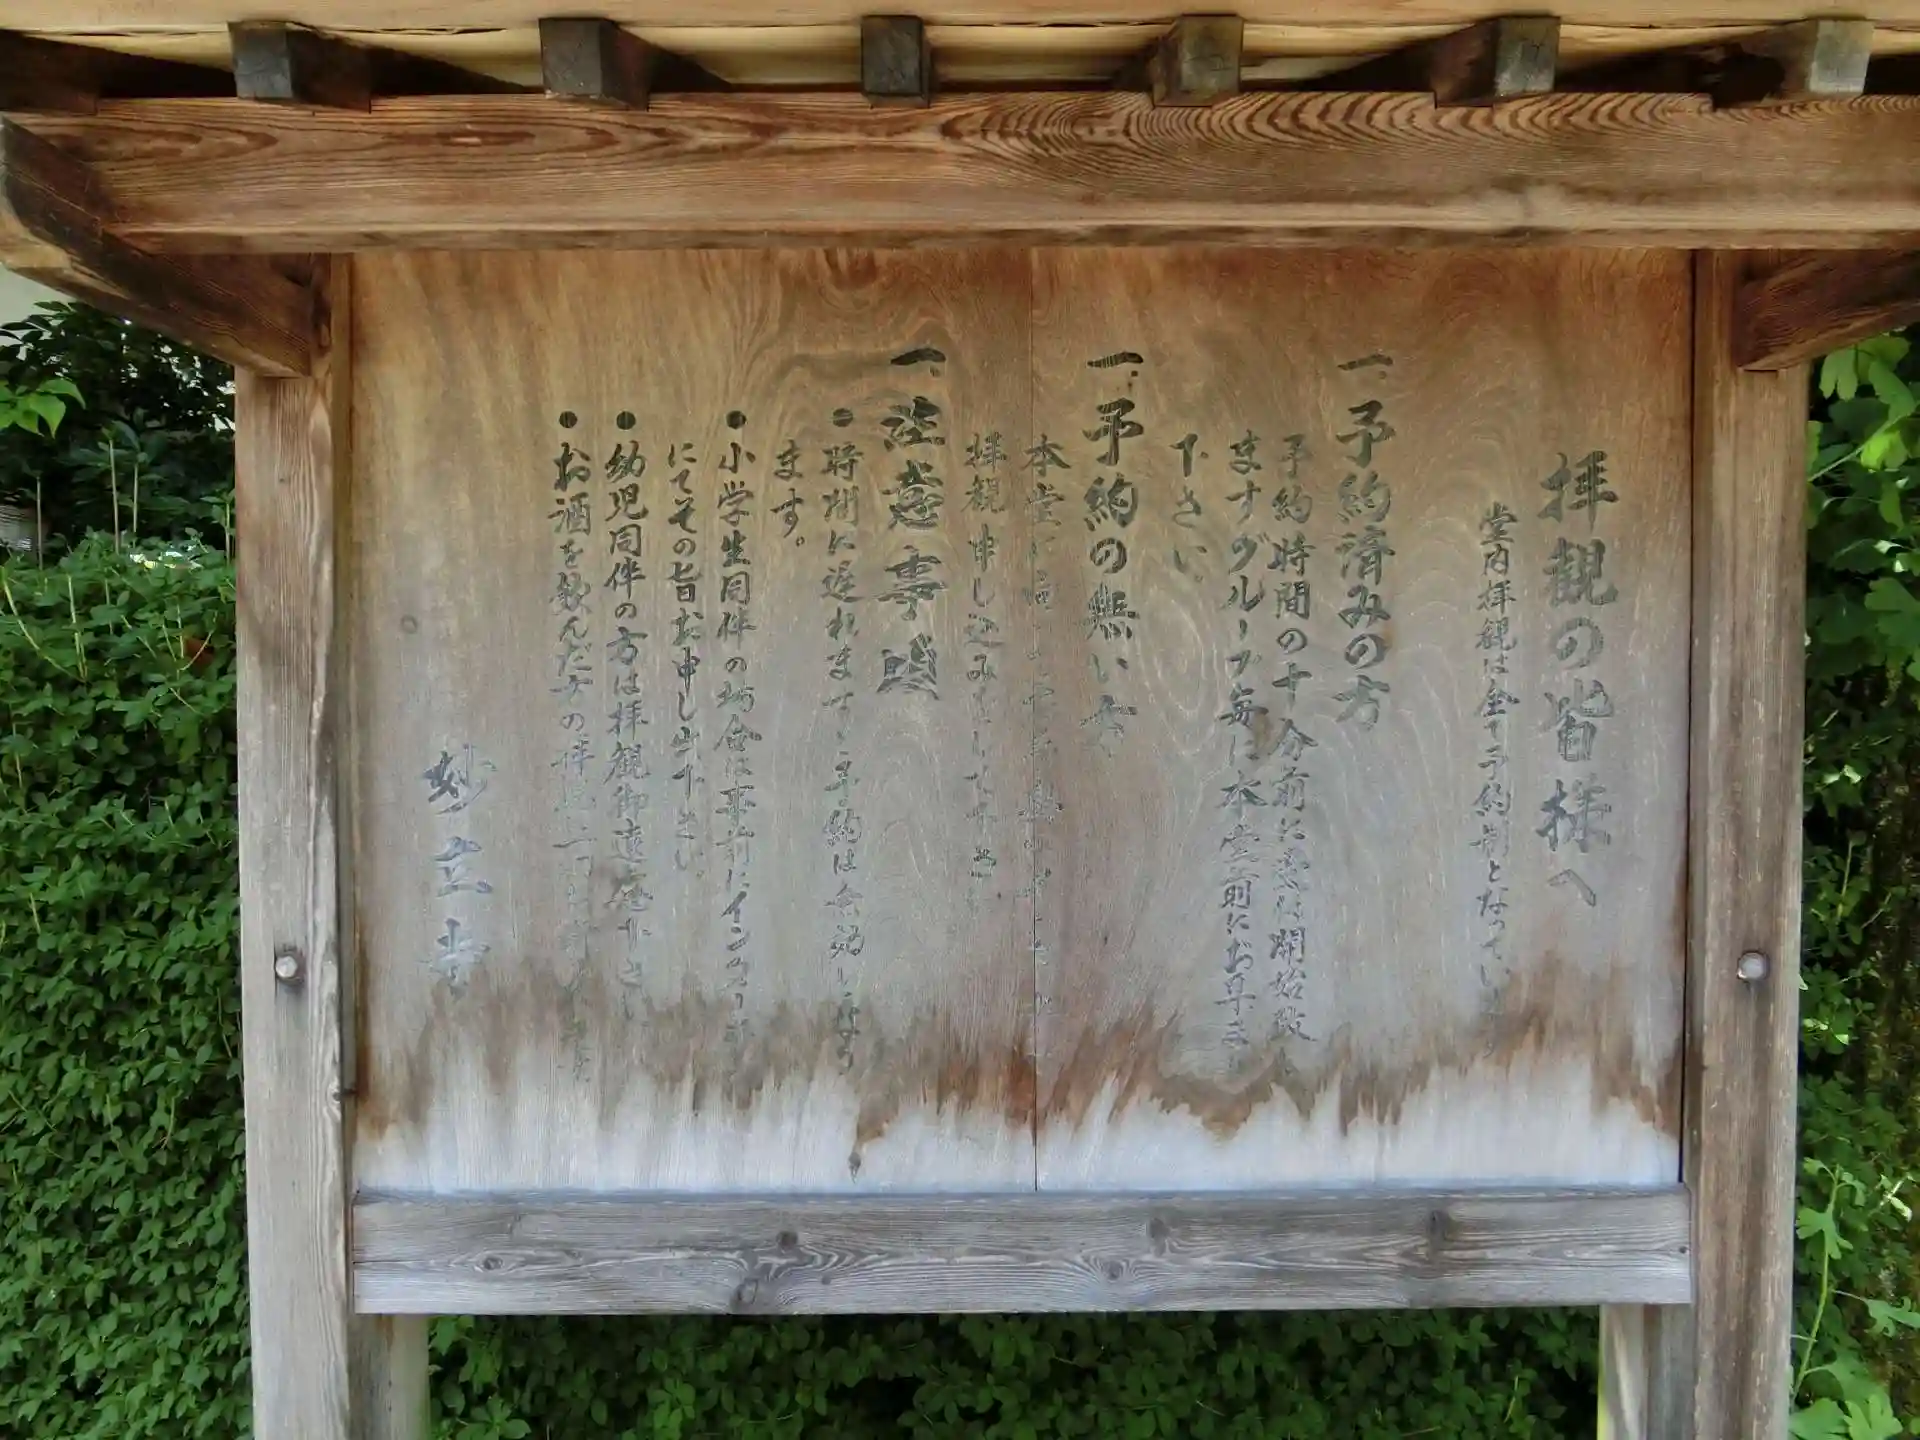 拝観の皆様へ
堂内拝観は全て予約制となってい
一、予約済みの方
予約時間の十分前に 開始致
ますグループ毎に本堂前にお集ま
下さい
一、予約の無い方
本堂に
拝観申し込みをして下さい
一、注意事項
●時間に遅れますと予約は無効になり
ます。
●小学生同伴の場合は事前にインターホン
にてその旨お申し出下さい。
●幼児同伴の方は拝観御遠慮下さい
●お酒を飲んだ方の拝観
妙立寺